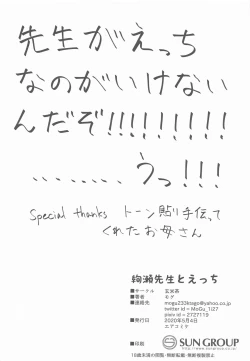 先生がえっち
なのがいけない
んだぞ!!!!!!!!!
………うっ!!!
Special thanks トーン貼り手伝って
くれたお母さん
絢瀬先生とえっち
■サークル 玄米茶
■著者 モグ
■連絡先 mogu233ksgo@yahoo.co.jp
twitter id = MoGu_1i27
pixiv id = 2727119
■発行日 2020年5月4日
エアコミケ
■印刷 SUN GROUP
18歳未満の閲覧・無断転載・無断複製禁止